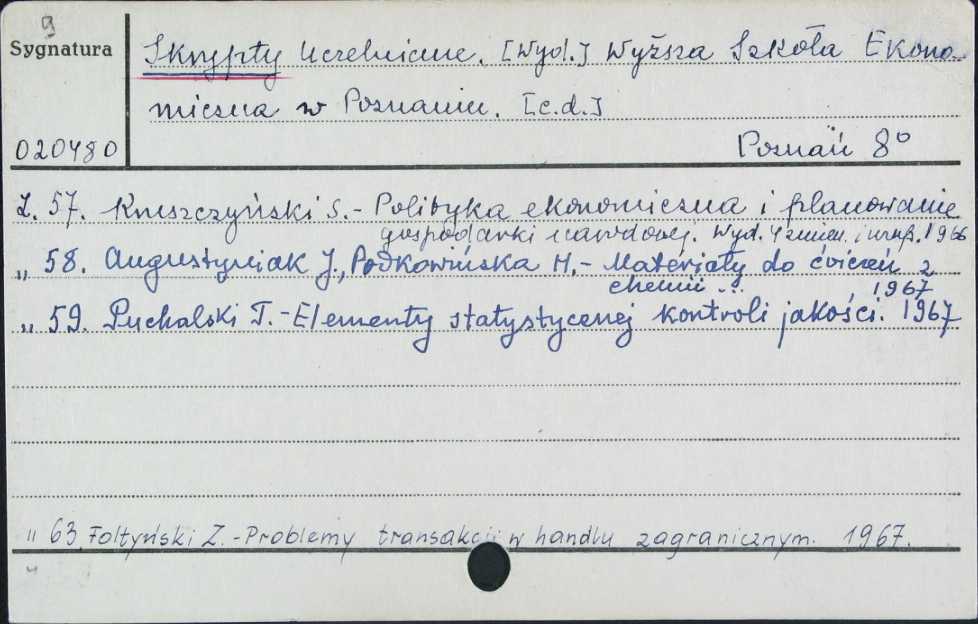 9
Sygnatura
Skrypty Uczelniane. [Wyd.] Wyższa Szkoła Ekono-
miczna w Poznaniu. [c.d.]
020480
Poznań 8°
Z. 57. Kruszczyński S. - Polityka ekonomiczna i planowanie
gospodarki narodowej. Wyd. 4 zmien. i uzup. 1966
„ 58. Augustyniak J., Podkowińska H. - Materiały do ćwiczeń z
chemii ... 1967
„ 59. Puchalski T. - Elementy statystycznej kontroli jakości. 1967
„ 63. Fołtyński Z. - Problemy transakcji w handlu zagranicznym. 1967.